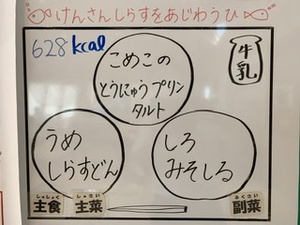 けんさんしらすをあじわうひ
628kcal
こめこの
とうにゅうプリン
タルト
牛乳
うめ
しらすどん
しろ
みそしる
しゅしょく しゅさい
主食 主菜
ふくさい
副菜